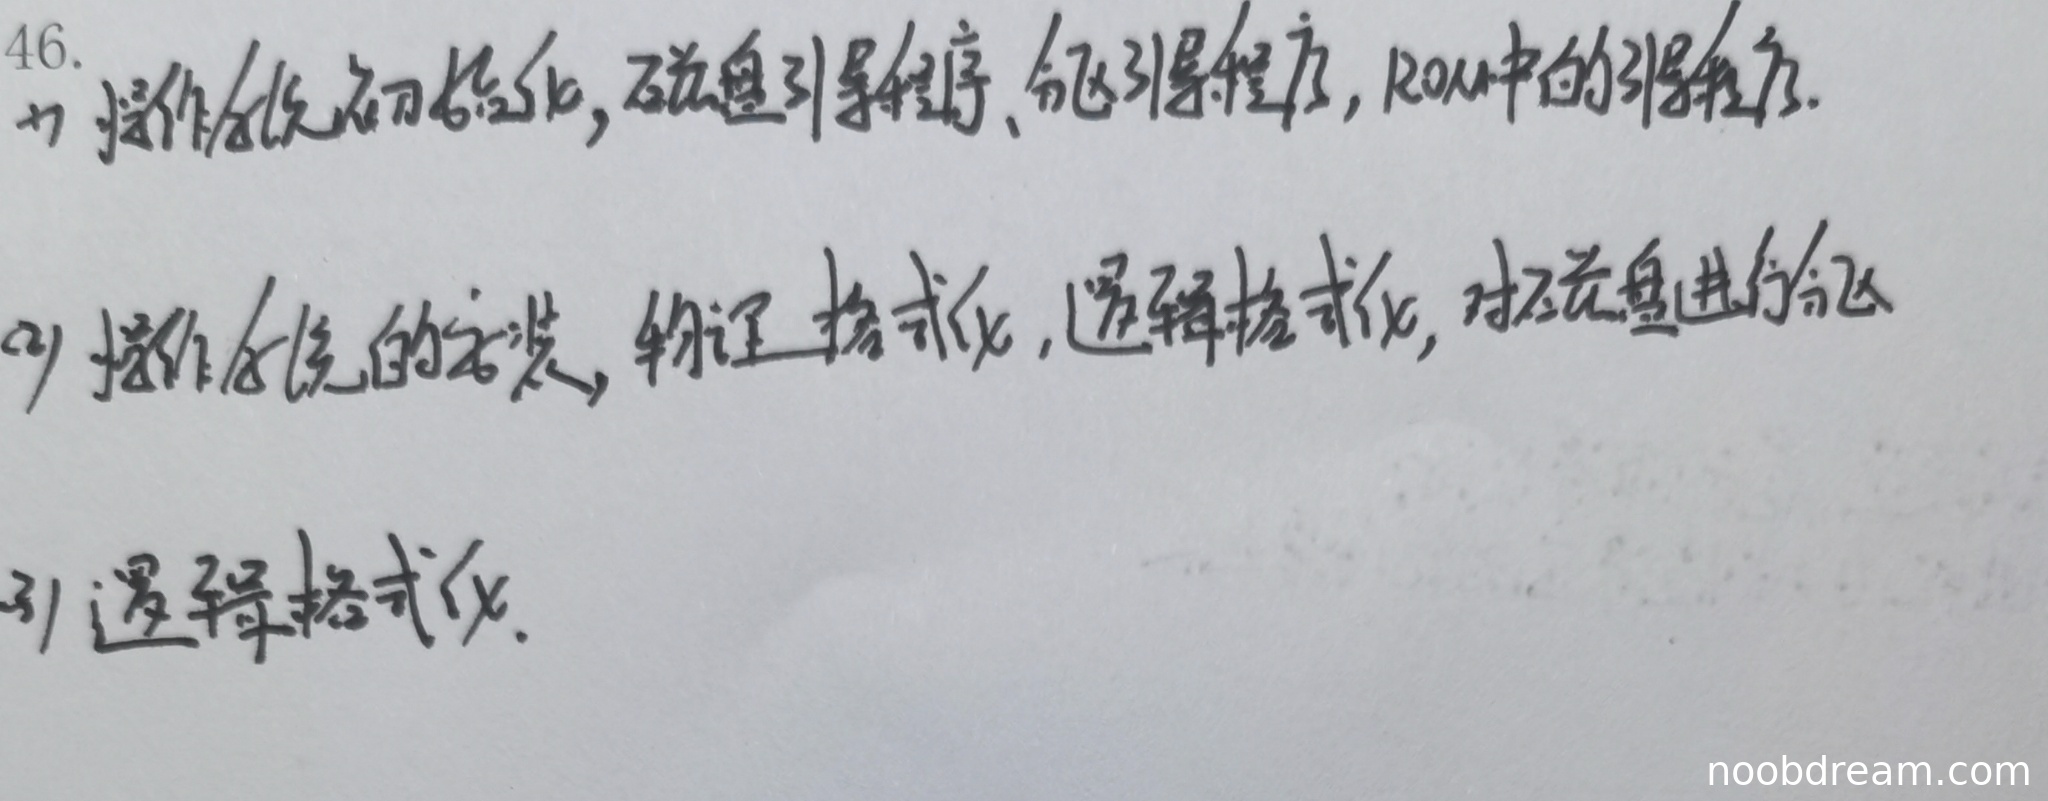 46.
(1) 操作系统初始化,磁盘引导程序、分区引导程序,ROM中的引导程序.
(2) 操作系统的安装,物理格式化,逻辑格式化,对磁盘进行分区
(3) 逻辑格式化.
noobdream.com